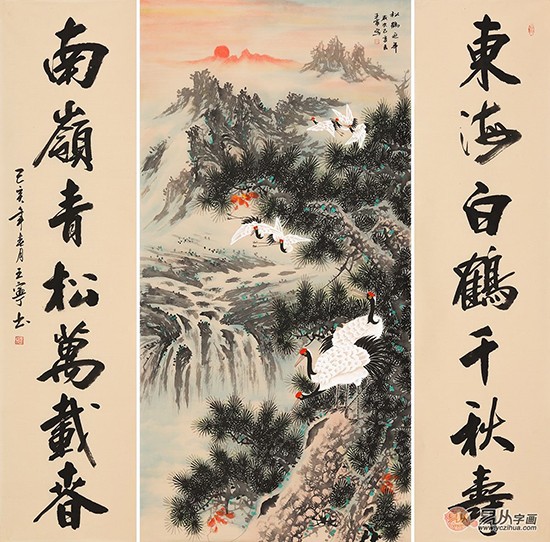 東海白鶴千秋壽
松鶴延年
南嶺青松萬載春
己亥年春月王寧书
易从字画
www.yczihua.com